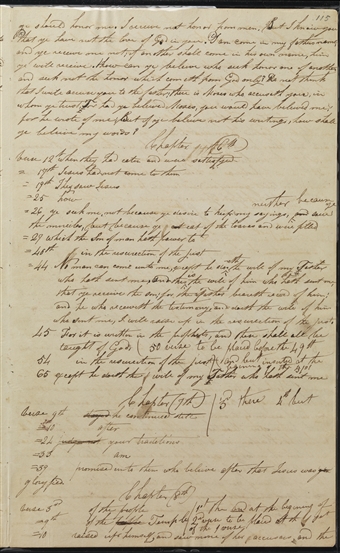 115
ye should honor me. I receive not honor from men, But I know you
that ye have not the love of God in you. I am come in my fathers name
and ye receive me not, if another shall come in his own name, him
ye will receive. How can ye believe who seek honor one of another
and seek not the honor which cometh from God only? Do not think
that I will accuse you to the father, there is Moses who accuseth you, in
whom ye trust. For had ye believed Moses, you would have believed me, for
he wrote of me, but if ye believe not his writings, how shall
ye believe my words?
Chapter 6th
verse 12th When they had eaten and was satisfied
= 17th Jesus had not come to them
= 19th They saw Jesus
= 25 how
neither because
= 26 ye seek me, not because ye desire to keep my sayings, and saw
the miracles, but because ye eat of the loaves and were filled
= 29 which the Son of man hath power to
= 40th in the resurrection of the just
= 44 No man can come unto me, except he doeth the will of my Father
who hath sent me, and this is the will of him who hath sent me
that ye receive the son; for the Father beareth record of him;
and he who receiveth the testimony, and doeth the will of him
who sent me, I will raise up in the resurrection of the just.
45 For it is written in the prophets, and these shall all be
taught of God 50 verse to be placed before the 49th
54 in the resurrection of the just
65 except he doeth the will of my Father who hath sent me
Chapter 7th
3 there 4th but
verse 9th he continued
after
= 24 your traditions
am
= 39 promised unto them who believe after that Jesus was
glorified
Chapter 8th
verse 3d of the people
of the Temple
= 10 raised up himself, and saw none of her accusers, and the